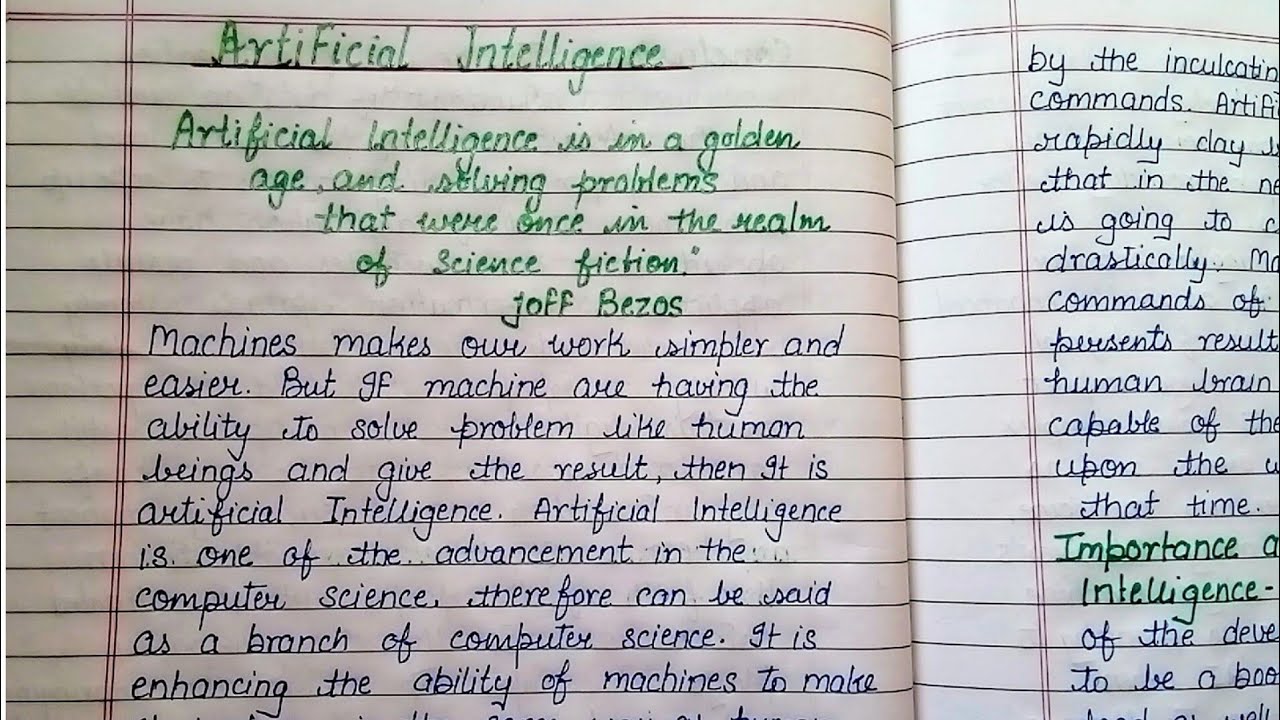 Artificial Intelligence
Artificial Intelligence is in a golden
age, and solving problems
that were once in the realm
of science fiction."
joff Bezos
Machines makes our work simpler and
easier. But If machine are having the
ability to solve problem like human
beings and give the result, then It is
artificial Intelligence. Artificial Intelligence
is one of the advancement in the
computer science, therefore can be said
as a branch of computer science. It is
enhancing the ability of machines to make
by the inculcatin
commands. Artifi
rapidly day
that in the ne
is going to c
drastically. Ma
commands of
persents result
human brain
capable of the
upon the
that time.
Importance
Intelligence-
of the deve
to be a boo